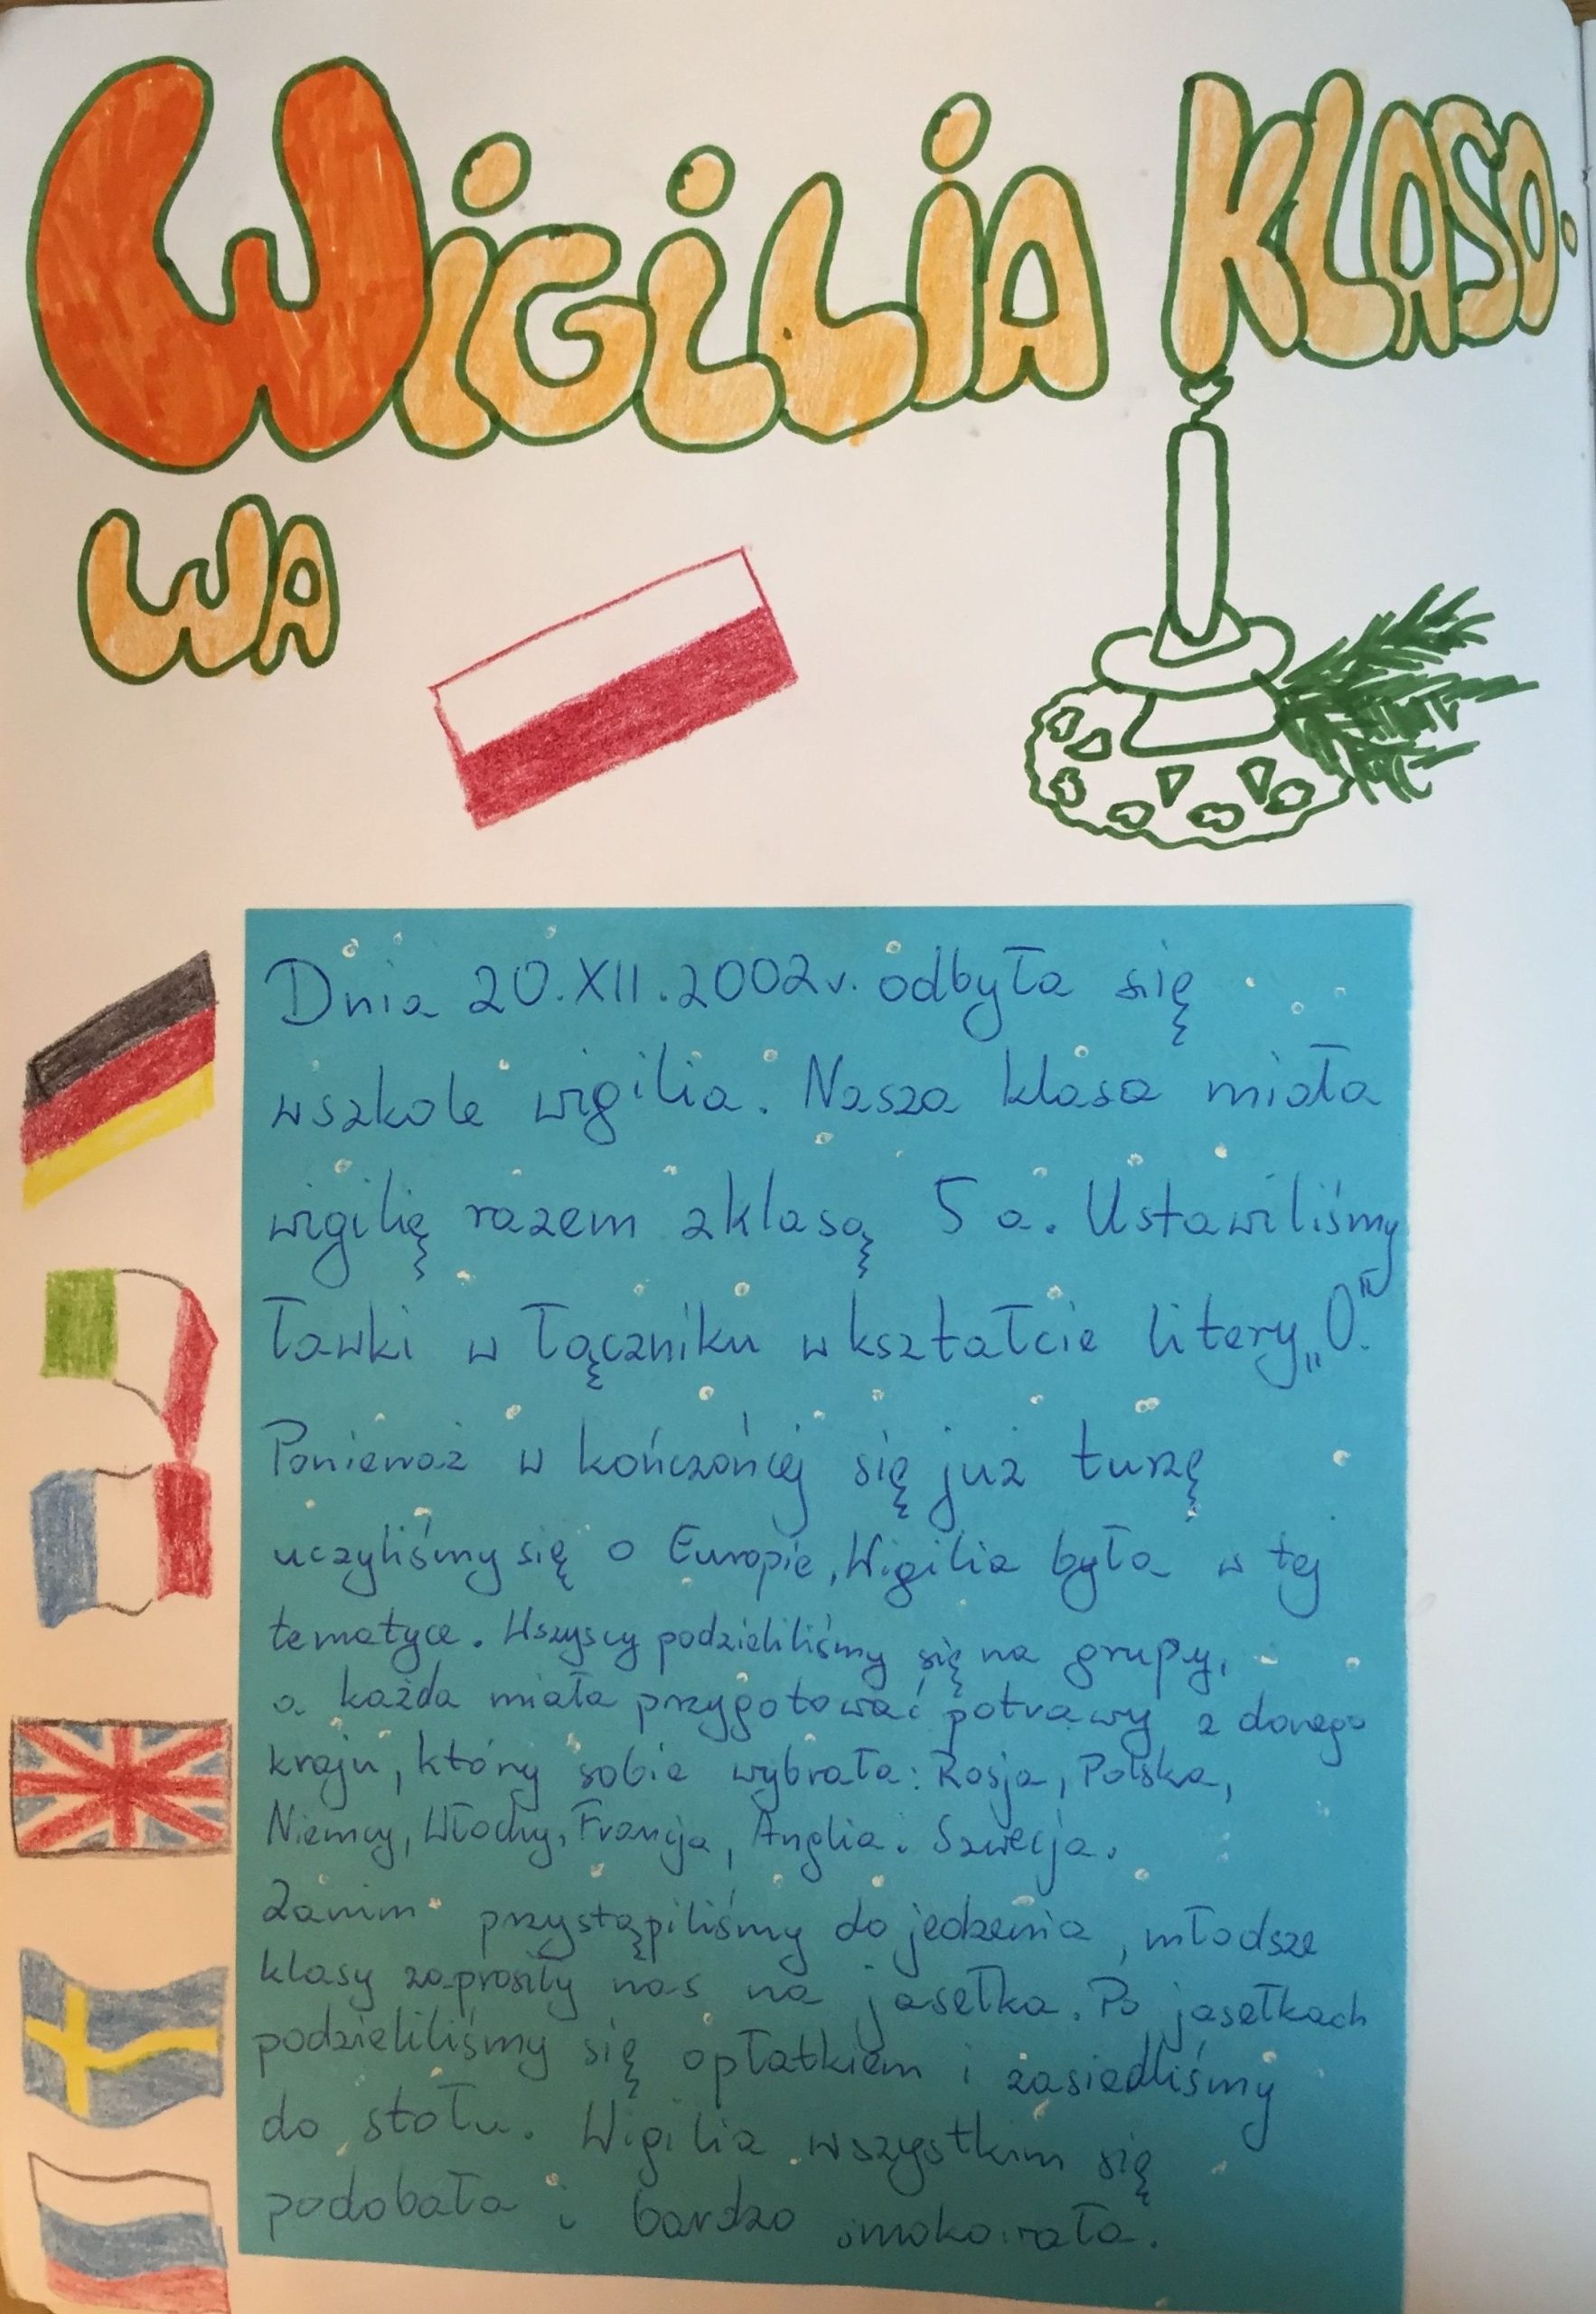 WIGILIA KLASO.
WA
Dnia 20.XII.2002r. odbyła się
w szkole wigilia. Nasza klasa miała
wigilię razem z klasą 5 a. Ustawiliśmy
ławki w łączniku w kształcie litery „O".
Ponieważ w kończońcej się już turzę
uczyliśmy się o Europie, Wigilia była w tej
tematyce. Wszyscy podzieliliśmy się na grupy,
a każda miała przygotować potrawy z danego
kraju, który sobie wybrała: Rosja, Polska,
Niemcy, Włochy, Francja, Anglia. Szwecja.
Zanim przystąpiliśmy do jedzenia, młodsze
klasy zaprosiły nas na jasełka. Po jasełkach
podzieliliśmy się opłatkiem i zasiedliśmy
do stołu. Wigilia wszystkim się
podobała i bardzo smakowała.